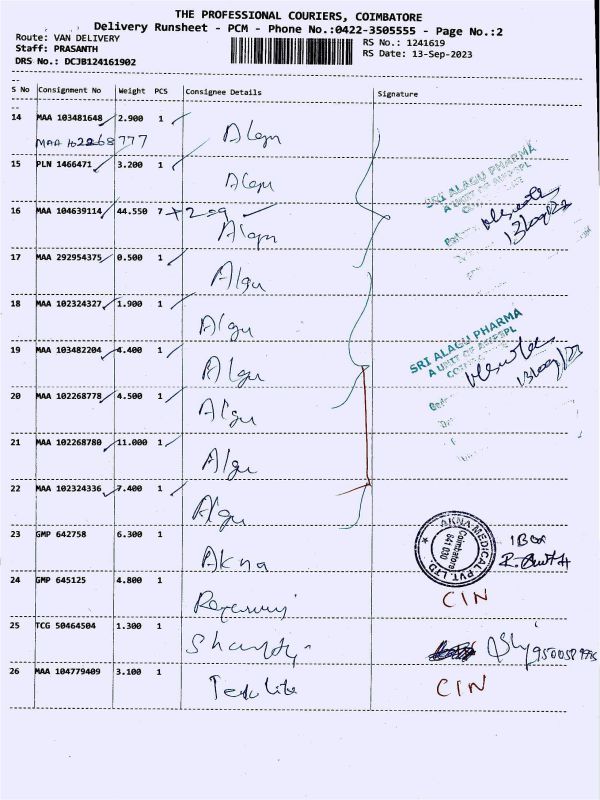 THE PROFESSIONAL COURIERS, COIMBATORE
Delivery Runsheet - PCM - Phone No.:0422-3505555 - Page No.:2
Route: VAN DELIVERY
RS No.: 1241619
Staff: PRASANTH
RS Date: 13-Sep-2023
DRS No.: DCJB124161902
S No Consignment No Weight PCS Consignee Details Signature
14 MAA 103481648 2.900 1 Alagu
MAA 102268777
15 PLN 1466471 3.200 1 Alagu
16 MAA 104639114 44.550 7 Alagu
SRI ALAGU PHARMA
A UNIT OF AWPSPL
17 MAA 292954375 0.500 1 Algu
18 MAA 102324327 1.900 1 Algu
19 MAA 103482204 4.400 1 Algu
SRI ALAGU PHARMA
A UNIT OF AWPSPL
20 MAA 102268778 4.500 1 Algu
21 MAA 102268780 11.000 1 Algu
22 MAA 102324336 7.400 1 Algu
23 GMP 642758 6.300 1 Akna
AKNA MEDICAL PVT. LTD.
Coimbatore
641 030
1 Box
24 GMP 645125 4.800 1
CIN
25 TCG 50464504 1.300 1
26 MAA 104779409 3.100 1
CIN